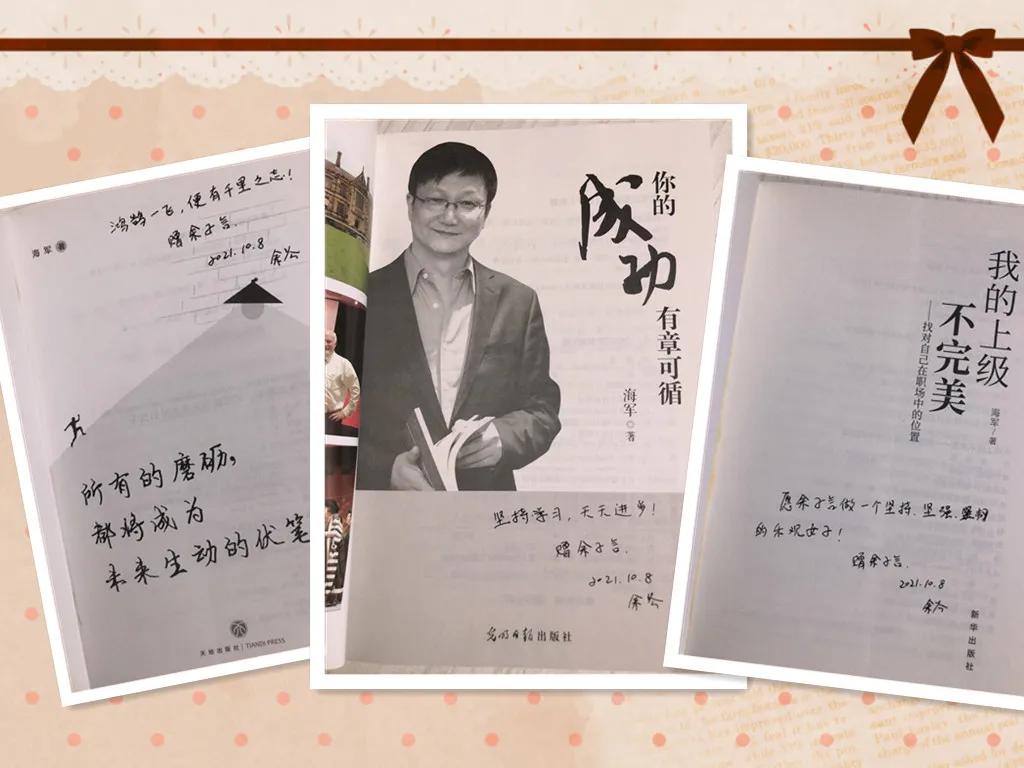 鸿鹄一飞,便有千里之志!
赠余子言.
2021.10.8
海军 著
所有的磨砺,
都将成为
未来生动的伏笔
天地出版社 | TIANDI PRESS
你的
成功
有章可循
海军◎著
坚持学习,天天进步!
赠余子言.
2021.10.8
光明日报出版社
我的上级
不完美
——找对自己在职场中的位置
海军/著
愿余子言做一个坚持、坚强、
的乐观女子!
赠余子言.
2021.10.8
新华出版社